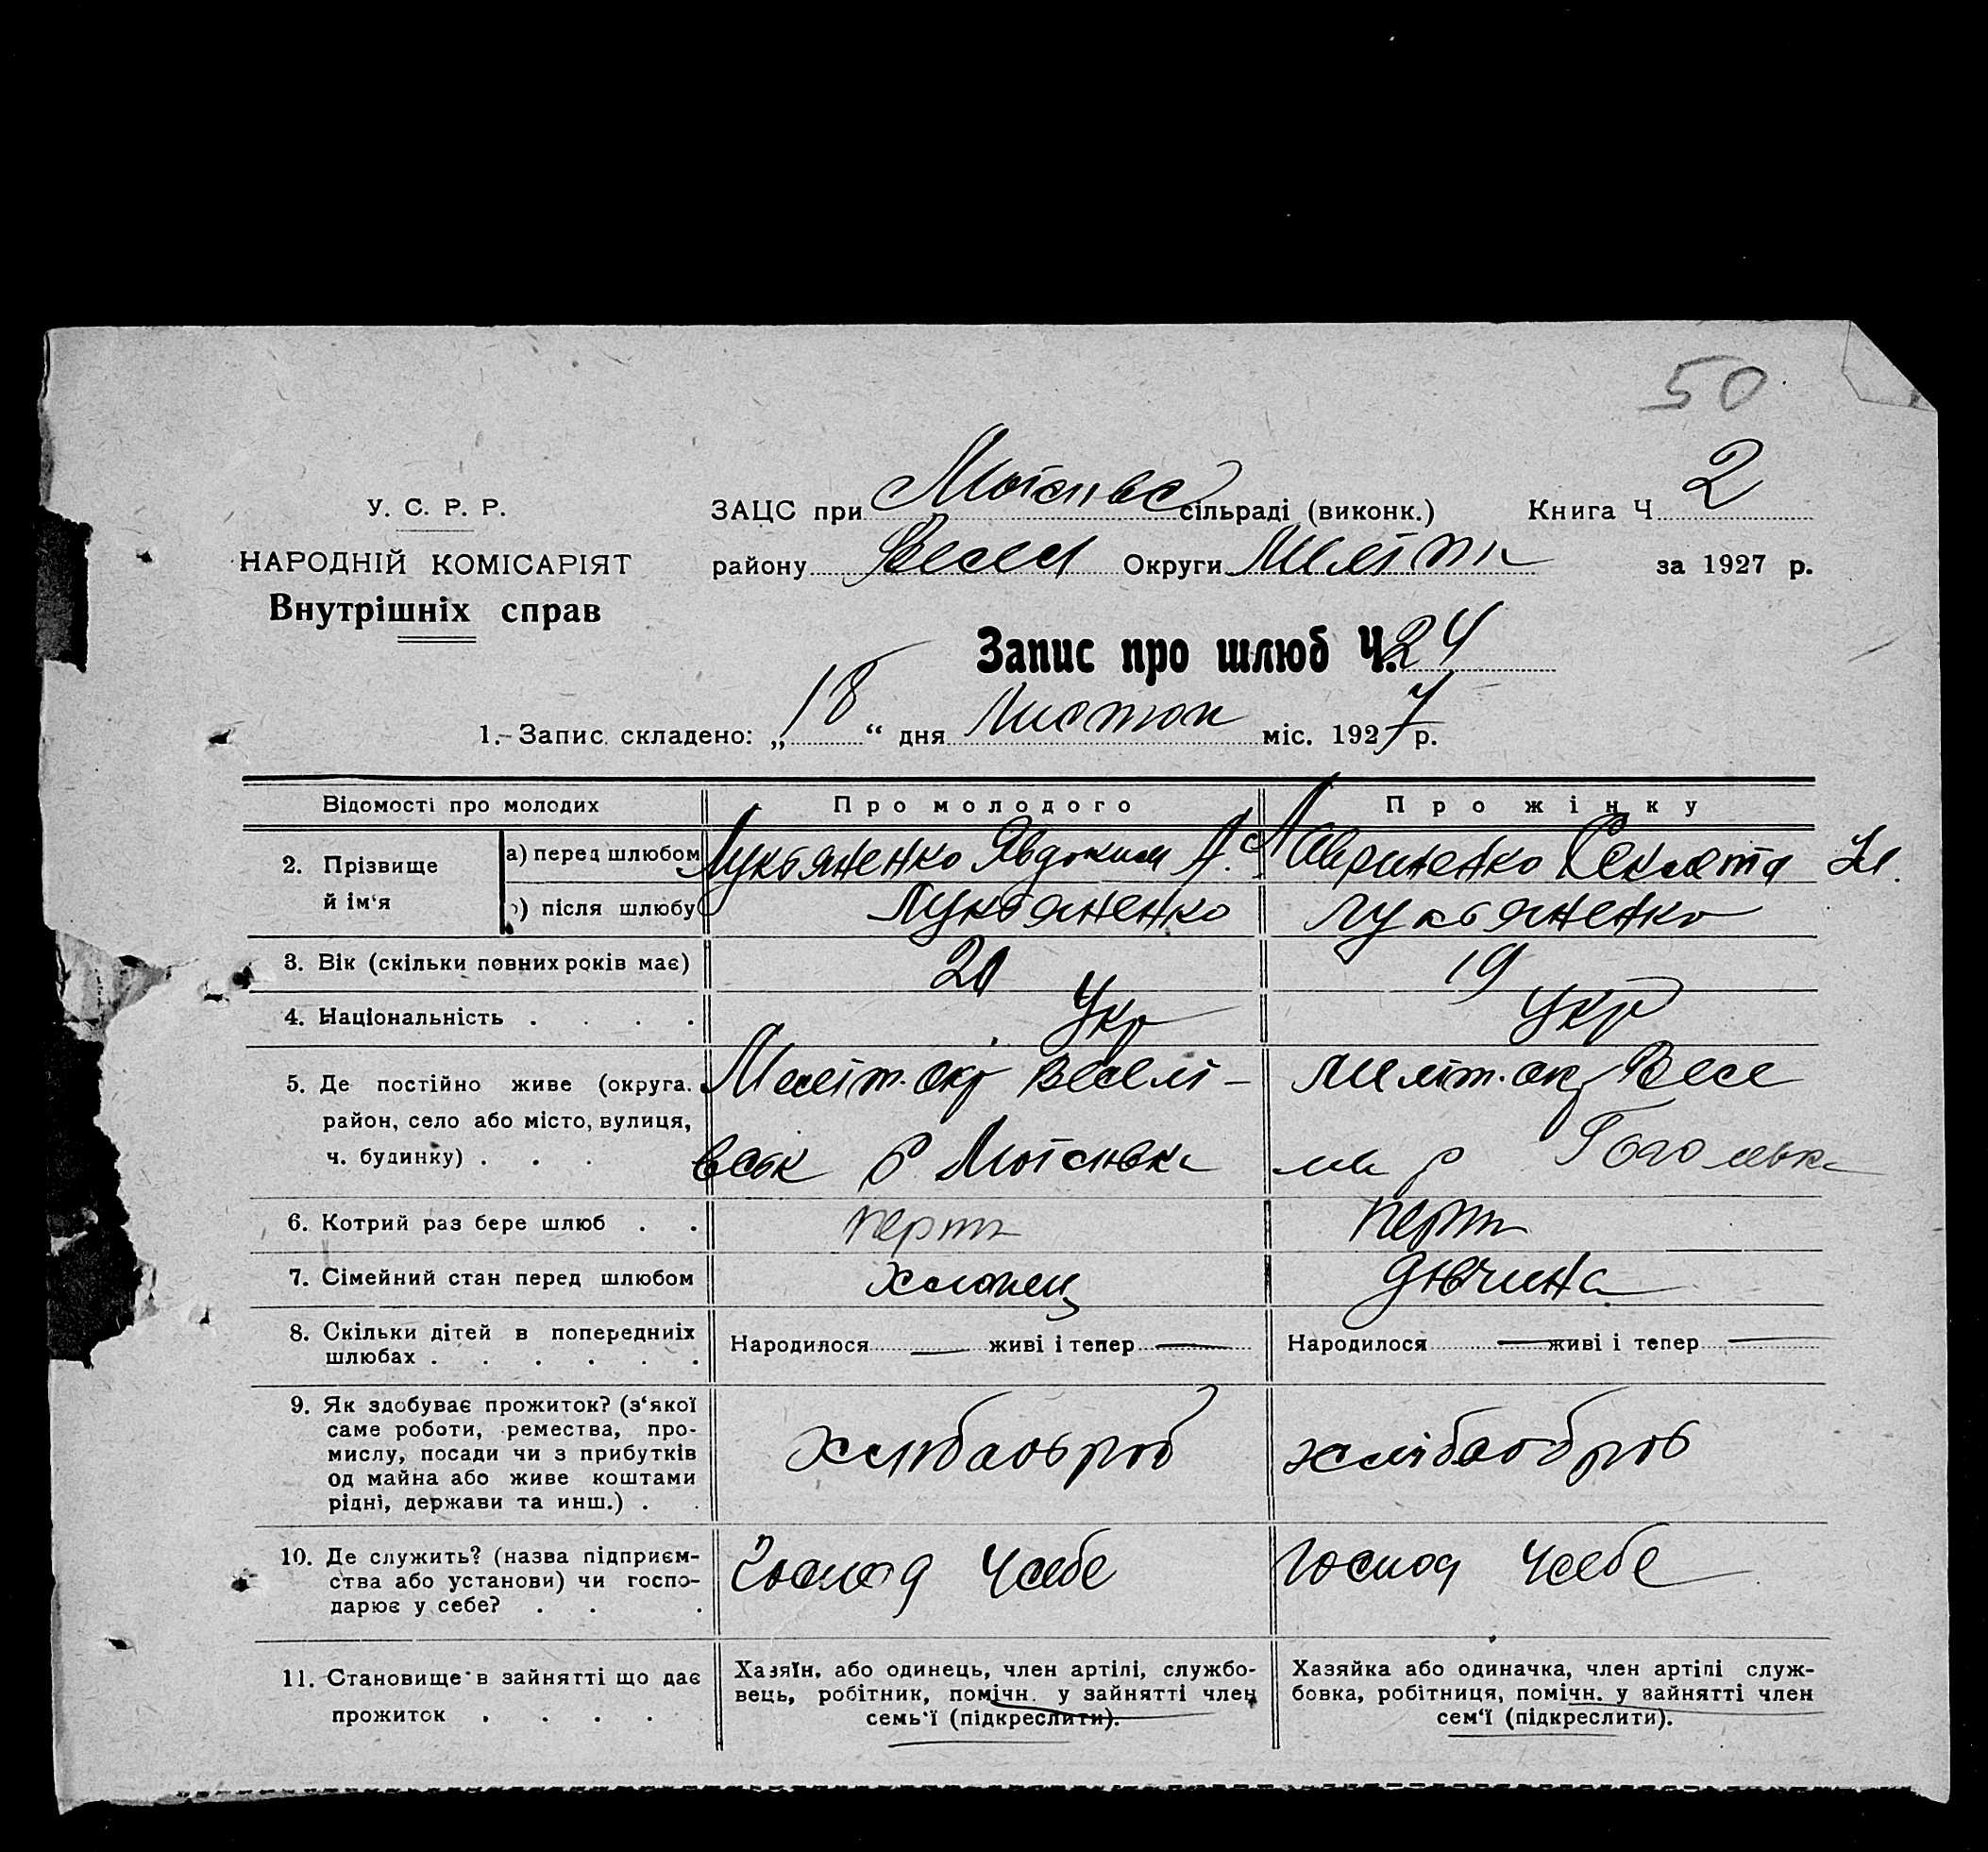 50
У. С. Р. Р.
НАРОДНІЙ КОМІСАРІЯТ
Внутрішніх справ
ЗАЦС при Моісівс сільраді (виконк.) Книга Ч 2
району Весел Округи Меліт за 1927 р.
Запис про шлюб Ч. 24
1. Запис складено: „ 18 “ дня Листоп міс. 1927 р.
Відомості про молодих Про молодого Про жінку
2. Прізвище й ім‘я
а) перед шлюбом Лукьяненко Явдоким А. Лавриненко Текля
б) після шлюбу Лукьяненко Лукьяненко
3. Вік (скільки повних років має) 20 19
4. Національність . . . . Укр Укр
5. Де постійно живе (округа. Меліт. окр Веселі- Меліт. ок Весе
район, село або місто, вулиця,
ч. будинку) . . . вськ р Моісівка р Гоголівка
6. Котрий раз бере шлюб . . перш перш
7. Сімейний стан перед шлюбом хлопец дівчина
8. Скільки дітей в попередниіх Народилося — живі і тепер — Народилося — живі і тепер —
шлюбах . . . . . .
9. Як здобуває прожиток? (з‘якої
саме роботи, ремества, про-
мислу, посади чи з прибутків хлібаоброб хлібаоброб
од майна або живе коштами
рідні, держави та инш.) . .
10. Де служить? (назва підприєм- Господ у себе Господ у себе
ства або установи) чи госпо-
дарює у себе? . . .
11. Становище в зайнятті що дає
прожиток . . . . .
Хазяїн, або одинець, член артілі, службо-
вець, робітник, помічн. у зайнятті член
семь‘ї (підкреслити).
Хазяйка або одиначка, член артілі служ-
бовка, робітниця, помічн. у зайнятті член
сем‘ї (підкреслити).